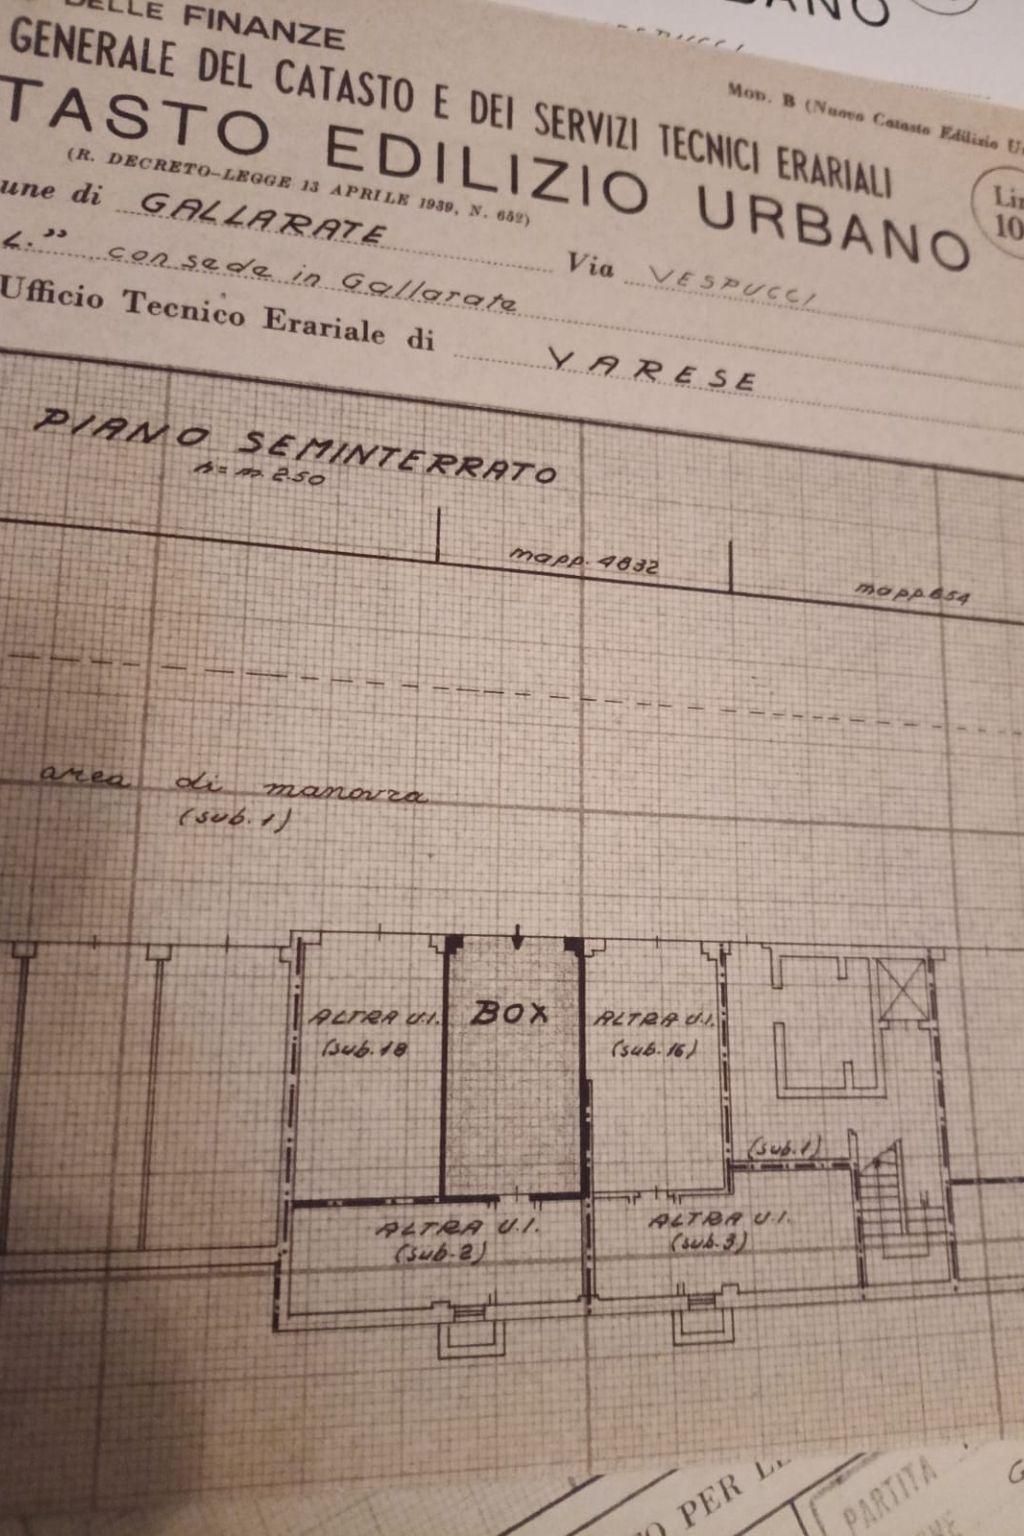 DELLE FINANZE
GENERALE DEL CATASTO E DEI SERVIZI TECNICI ERARIALI
Mod. B (Nuovo Catasto Edilizio
TASTO EDILIZIO URBANO
(R. DECRETO-LEGGE 13 APRILE 1939, N. 652)
une di GALLARATE Via VESPUCCI
L." con sede in Gallarate
Ufficio Tecnico Erariale di VARESE
PIANO SEMINTERRATO
h = m. 2.50
mapp. 4832
mapp. 654
area di manovra
(sub. 1)
BOX
ALTRA U.I.
(sub. 18
ALTRA U.I.
(sub. 16)
(sub. 1)
ALTRA U.I.
(sub. 2)
ALTRA U.I.
(sub. 3)
PER
PARTITA